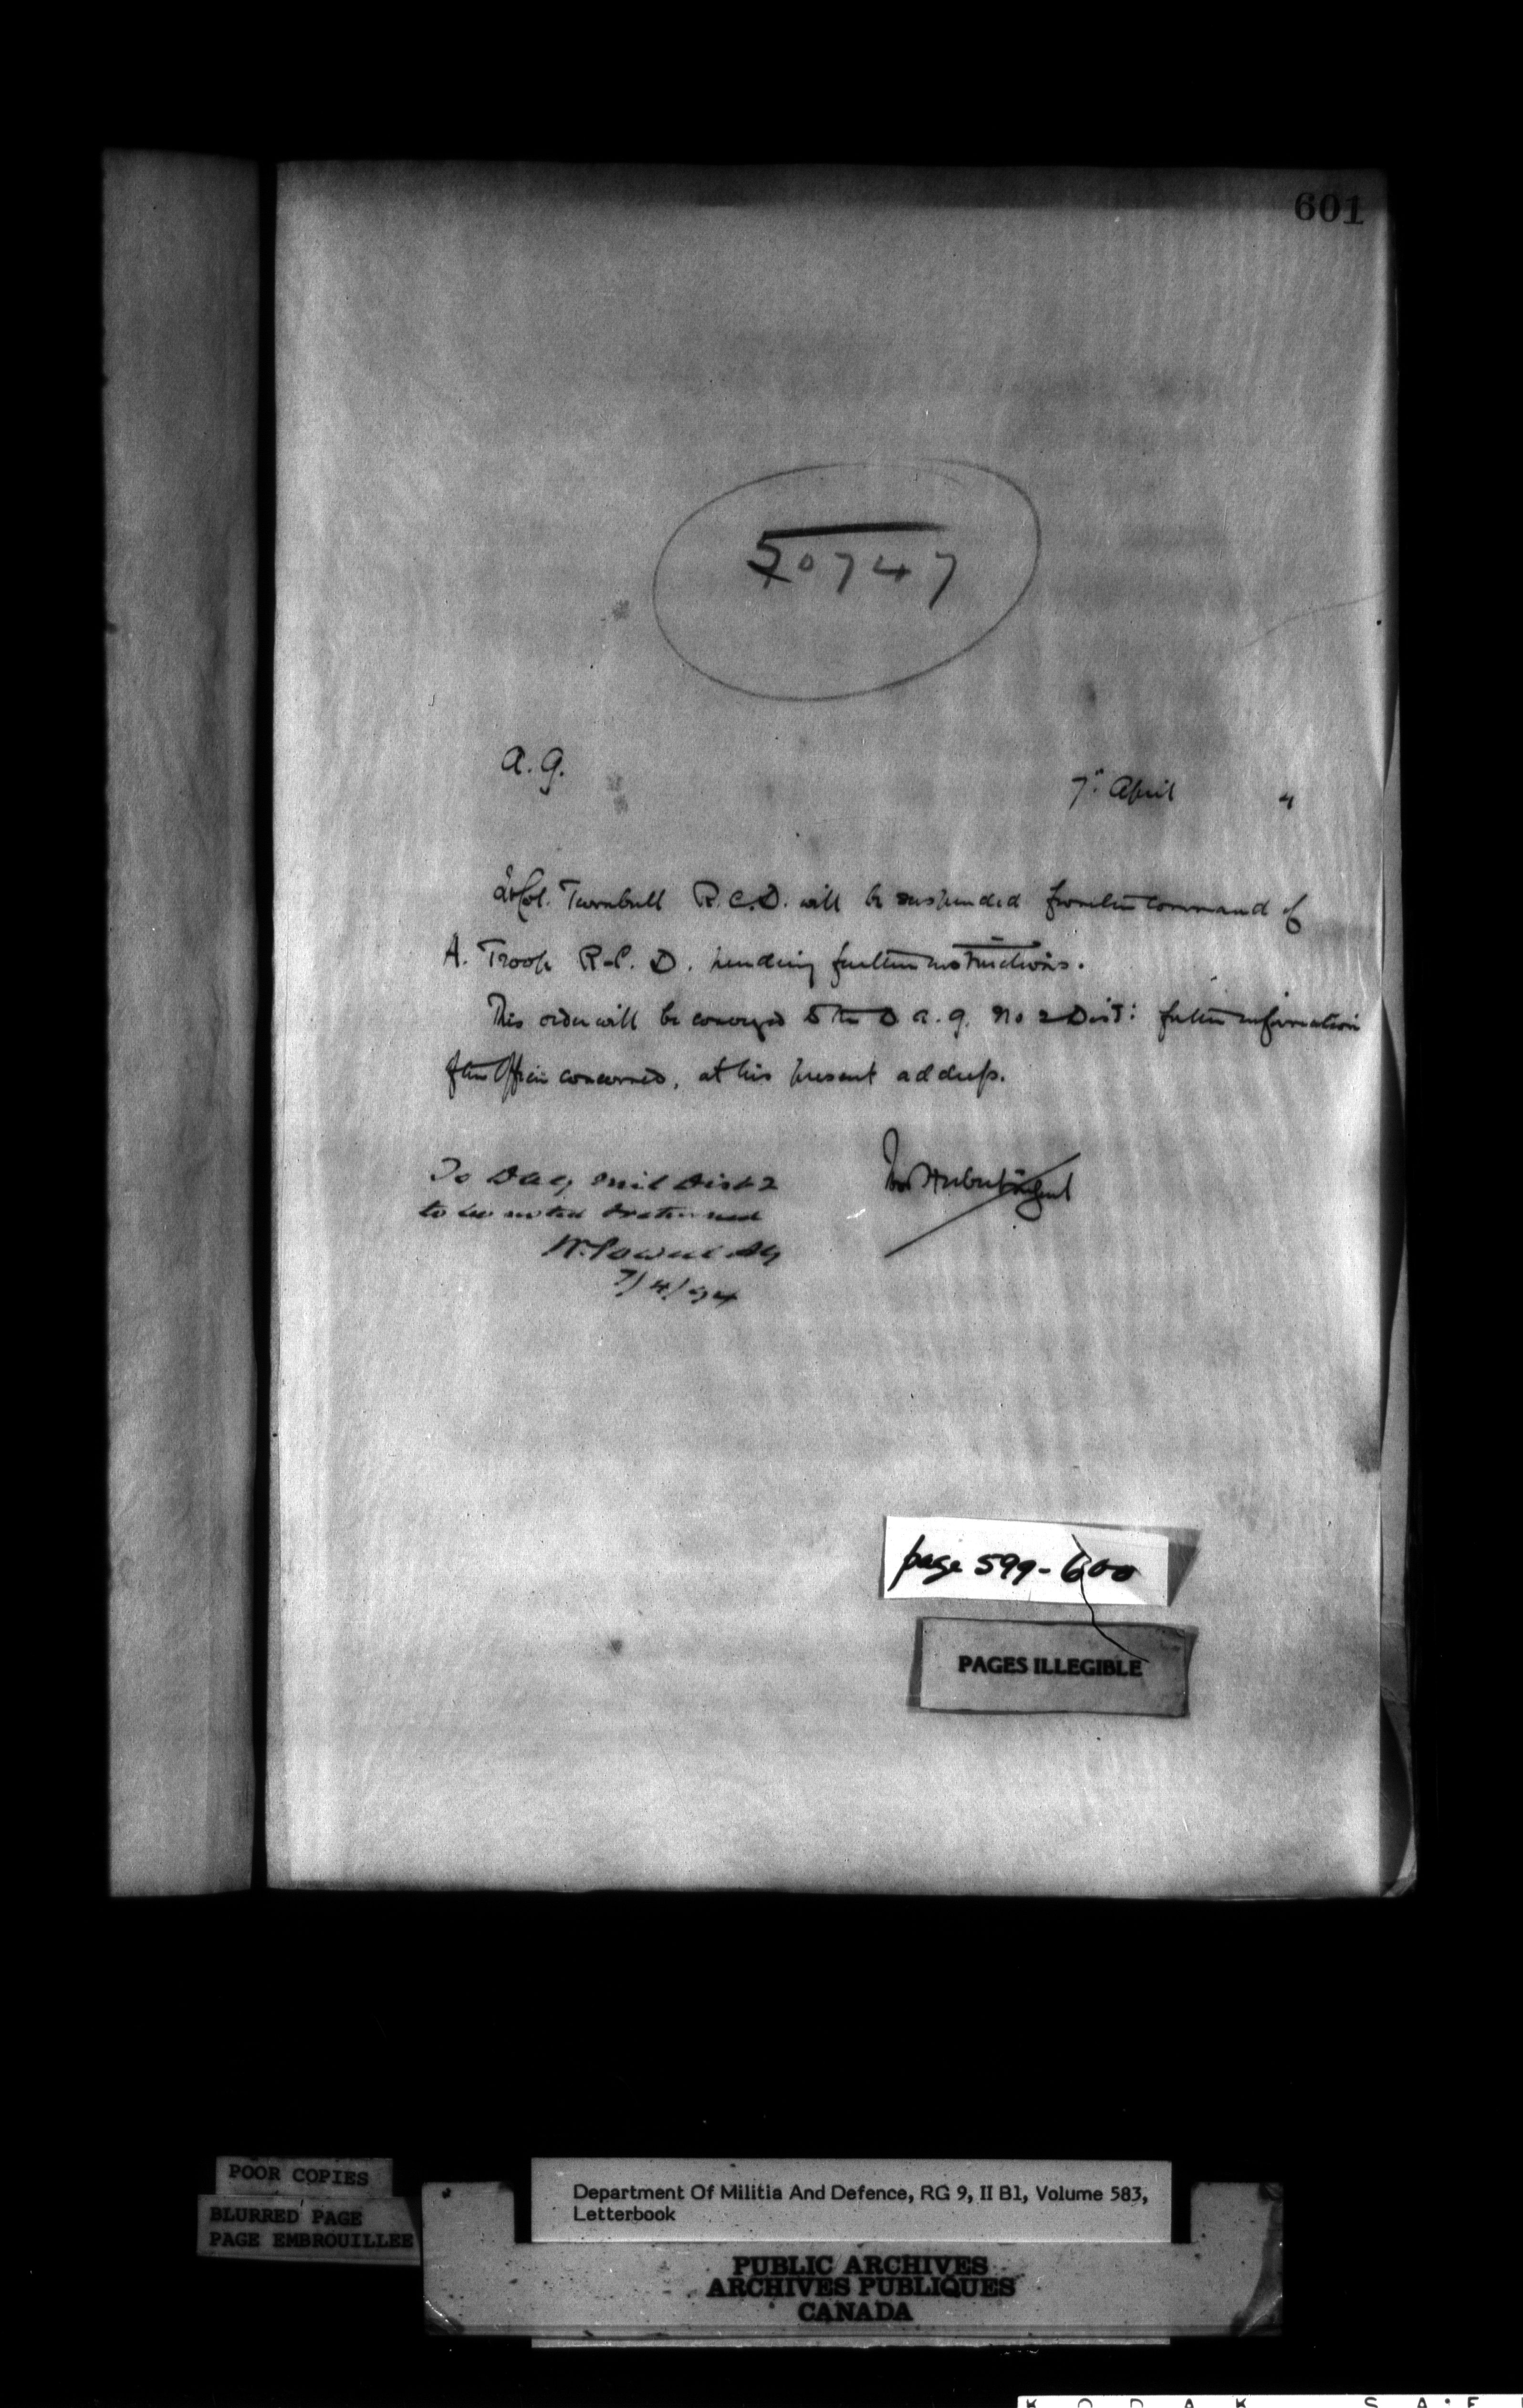 601
50747
A. G.
7th April 4
Lt Col. Turnbull R.C.D. will be suspended from the command of
A. Troop R.C.D. pending further instructions.
This order will be conveyed to the D.A.G. No 2 Dist: for the information
of the Officer concerned, at his present address.
To DAG Mil Dist 2
to be noted & returned
W. Powell AG
7/4/94
page 599-600
PAGES ILLEGIBLE
POOR COPIES
BLURRED PAGE
PAGE EMBROUILLEE
Department Of Militia And Defence, RG 9, II B1, Volume 583,
Letterbook
PUBLIC ARCHIVES
ARCHIVES PUBLIQUES
CANADA
KODAK SAFE